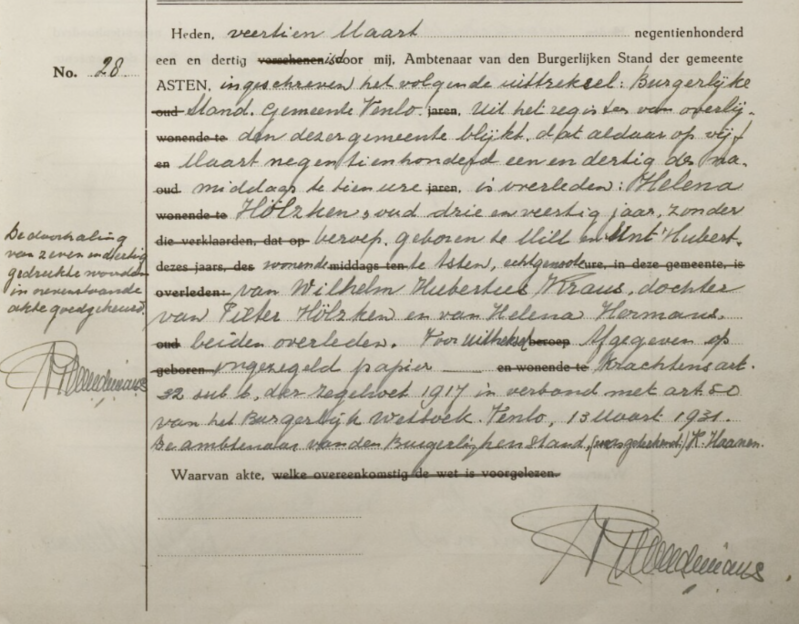 No. 28
Heden, veertien Maart negentienhonderd
een en dertig verschenen is door mij, Ambtenaar van den Burgerlijken Stand der gemeente
ASTEN, ingeschreven het volgende uittreksel: Burgerlijke
oud Stand. Gemeente Venlo. jaren, Uit het register van overlij-
wonende te den dezer gemeente blijkt, dat aldaar op vijf
en Maart negentienhonderd een en dertig des na-
oud middags te tien ure jaren, is overleden: Helena
wonende te Hölzken, oud drie en veertig jaar, zonder
die verklaarden, dat op beroep, geboren te Mill en Sint Hubert,
dezes jaars, des wonende middags ten te Asten, echtgenoote ure, in deze gemeente, is
overleden: van Wilhelm Hubertus Kraus, dochter
van Pieter Hölzken en van Helena Hermans,
oud beiden overleden. Voor uittreksel beroep Afgegeven op
geboren ongezegeld papier en wonende te Krachtens art.
32 sub 6, der zegelwet 1917 in verband met art. 50
van het Burgerlijk Wetboek Venlo, 13 Maart 1931.
De ambtenaar van den Burgerlijken Stand, (was geteekend:) K. Haanen.
Waarvan akte, welke overeenkomstig de wet is voorgelezen.
De doorhaling
van zeven en dertig
gedrukte woorden
in nevenstaande
akte goedgekeurd.